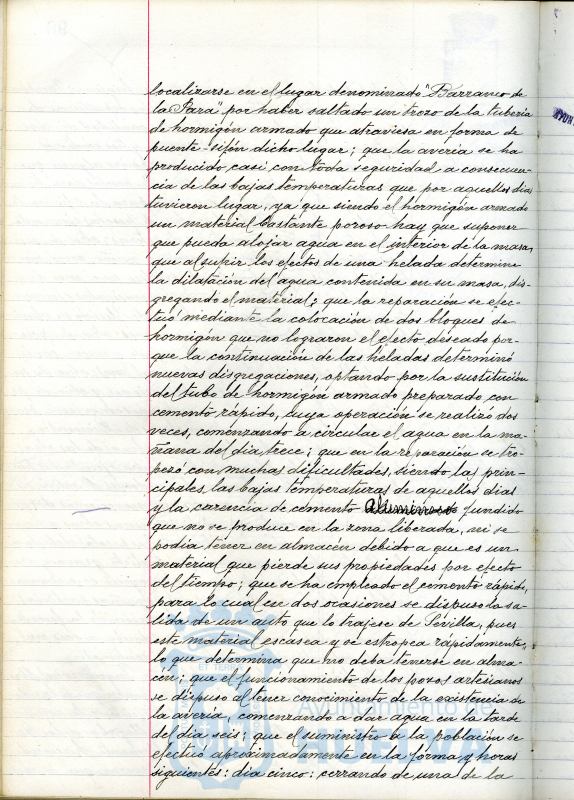 localizarse en el lugar denominado "Barranco de
la Jara" por haber saltado un trozo de la tubería
de hormigón armado que atraviesa en forma de
puente-sifón dicho lugar; que la avería se ha
producido casi con toda seguridad a consecuen-
cia de las bajas temperaturas que por aquellos días
tuvieron lugar, ya que siendo el hormigón armado
un material bastante poroso hay que suponer
que pueda alojar agua en el interior de la masa,
que al sufrir los efectos de una helada determine
la dilatación del agua contenida en su masa, dis-
gregando el material; que la reparación se efec-
tuó mediante la colocación de dos bloques de
hormigón que no lograron el efecto deseado por-
que la continuación de las heladas determinó
nuevas disgregaciones, optando por la sustitución
del tubo de hormigón armado preparado con
cemento rápido, cuya operación se realizó dos
veces, comenzando a circular el agua en la ma-
ñana del día trece; que en la reparación se tro-
pezó con muchas dificultades, siendo las prin-
cipales, las bajas temperaturas de aquellos días
y la carencia de cemento aluminoso fundido
que no se produce en la zona liberada, ni se
podía tener en almacén debido a que es un
material que pierde sus propiedades por efecto
del tiempo; que se ha empleado el cemento rápido,
para lo cual en dos ocasiones se dispuso la sa-
lida de un auto que lo trajese de Sevilla, pues
este material escasea y se estropea rápidamente,
lo que determina que no deba tenerse en alma-
cen; que el funcionamiento de los pozos artesianos
se dispuso al tener conocimiento de la existencia de
la avería, comenzando a dar agua en la tarde
del día seis; que el suministro a la población se
efectuó aproximadamente en la forma y horas
siguientes: día cinco: cerrando de una de la
Ayuntamiento de
HUELVA